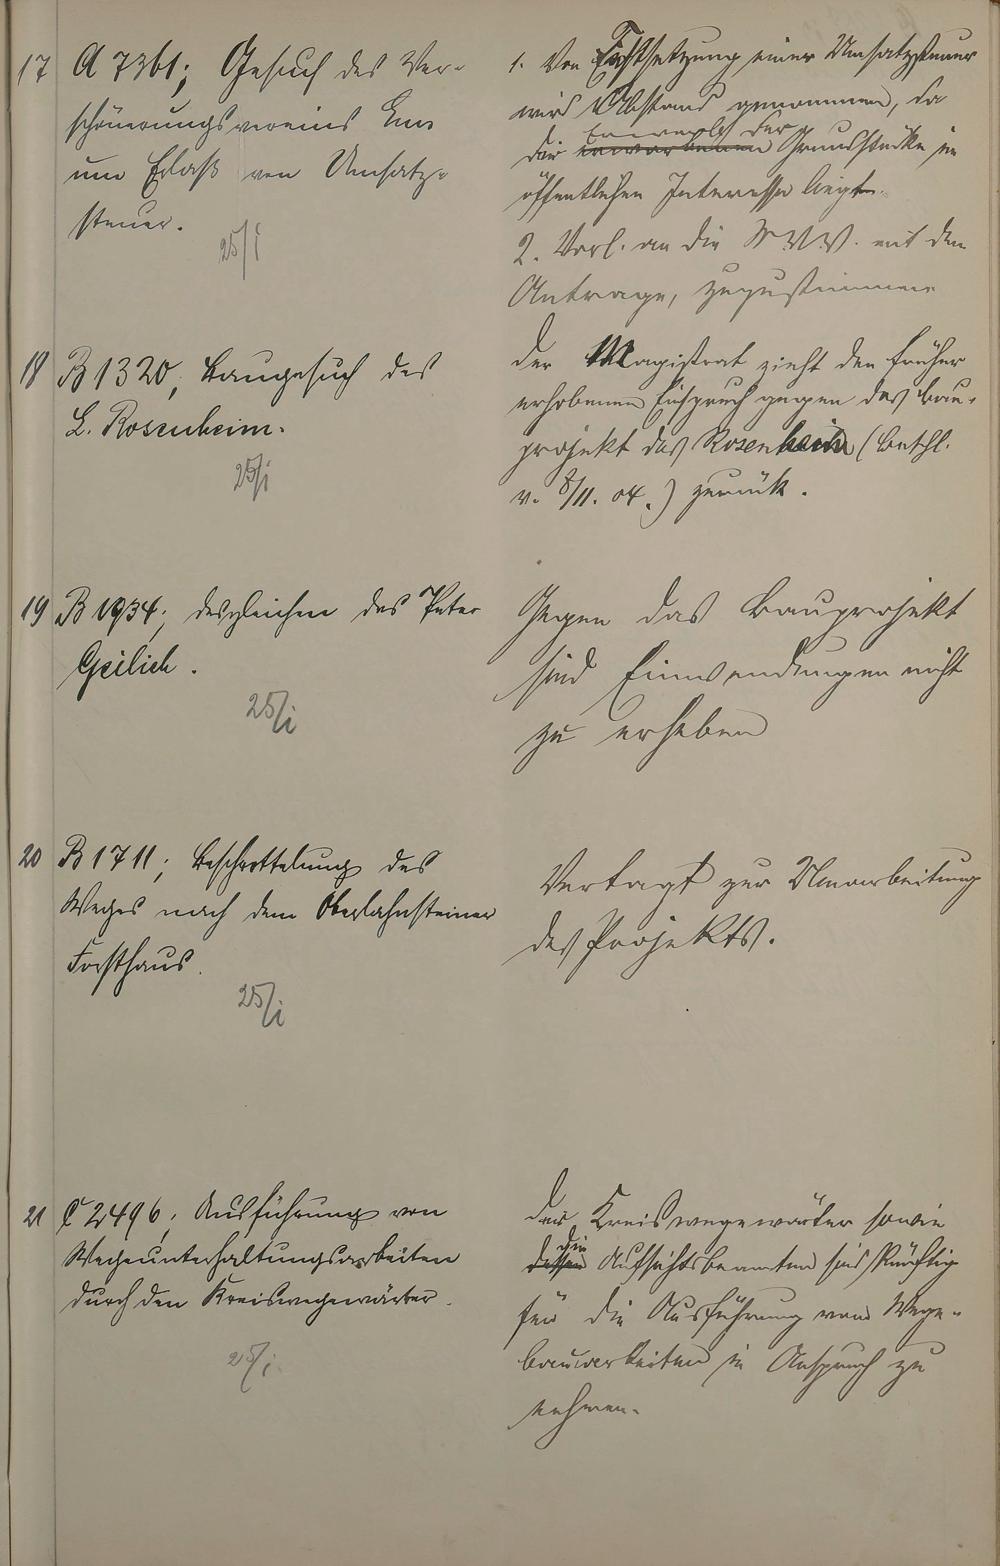 17 A 7361; Gesuch des Ver-
schönerungsvereins Ems
um Erlaß von Umsatz-
steuer.
25/I
1. Von Festsetzung einer Umsatzsteuer
wird Abstand genommen, da
der Erwerb der
die erworbenen Grundstücke im
öffentlichen Interesse liegt.
2. Vorl. an die St.V.V. mit dem
Antrage, zuzustimmen
18 B 1320, Baugesuch des
L. Rosenheim.
25/I
Der Magistrat zieht den früher
erhobenen Einspruch gegen das Bau-
projekt des Rosenheim (Beschl.
v. 8/11. 04.) zurück.
19 B 1934; desgleichen des Peter
Geilich.
25/I
Gegen das Bauprojekt
sind Einwendungen nicht
zu erheben
20 B 1711; Beschotterung des
Weges nach dem Oberlahnsteiner
Forsthaus.
25/I
Vertagt zur Umarbeitung
des Projekts.
21 C 2496; Ausführung von
Wegeunterhaltungsarbeiten
durch den Kreiswegewärter.
25/I
Der Kreiswegewärter sowie
die
dessen Aufsichtsbeamten sind künftig
für die Ausführung von Wege-
bauarbeiten in Anspruch zu
nehmen.